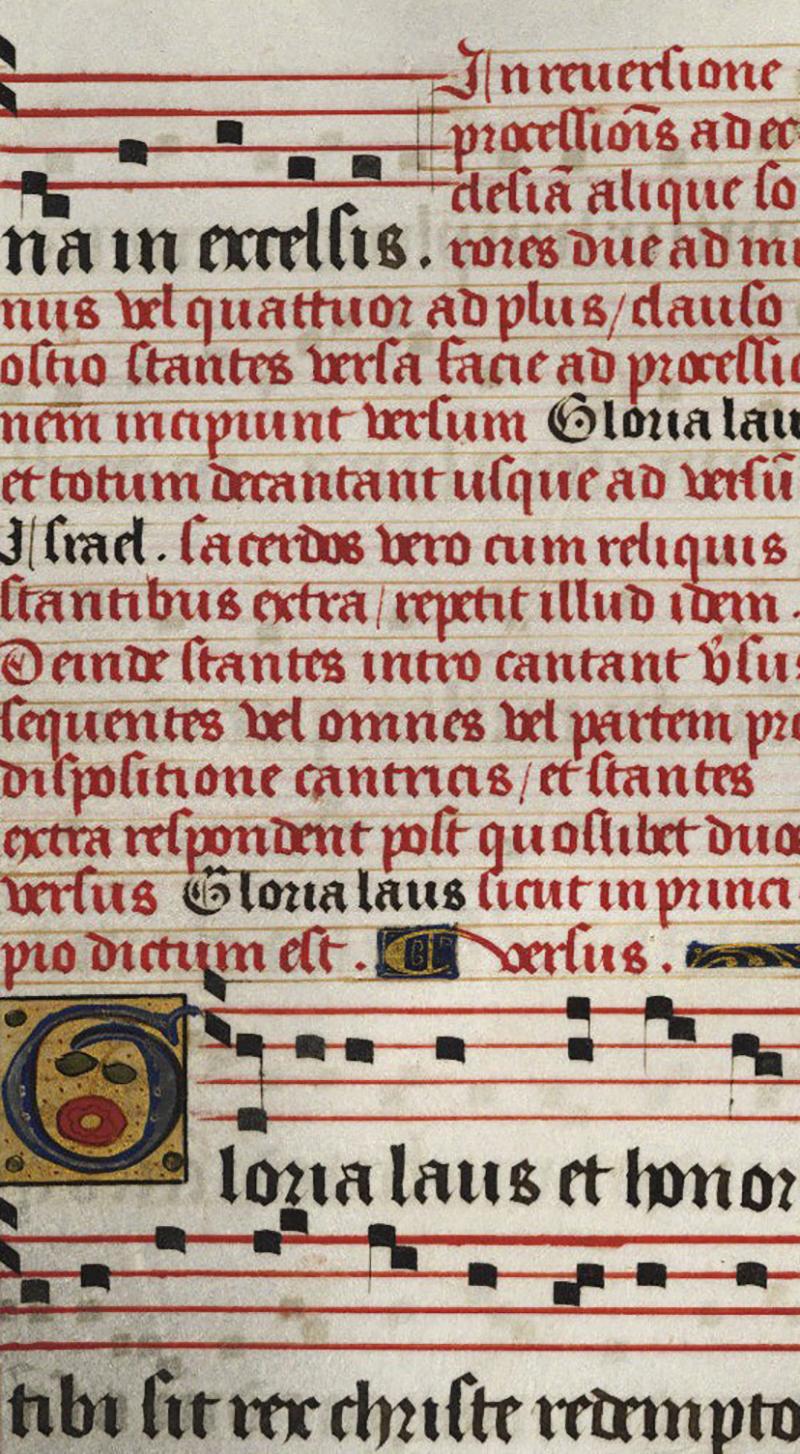 In reuersione
processiōis ad ec
clesiā alique so
na in excelsis. rores due ad mi
nus vel quattuor ad plus/ clauso
ostio stantes versa facie ad processio
nem incipiunt versum Gloria lau
et totum decantant usque ad versū
Israel. sacerdos vero cum reliquis
stantibus extra/ repetit illud idem.
Deinde stantes intro cantant v̓sus
sequentes vel omnes vel partem pro
dispositione cantricis/ et stantes
extra respondent post quoslibet duos
versus Gloria laus sicut in princi
pio dictum est. versus.
Gloria laus et honor
tibi sit rex christe redempto